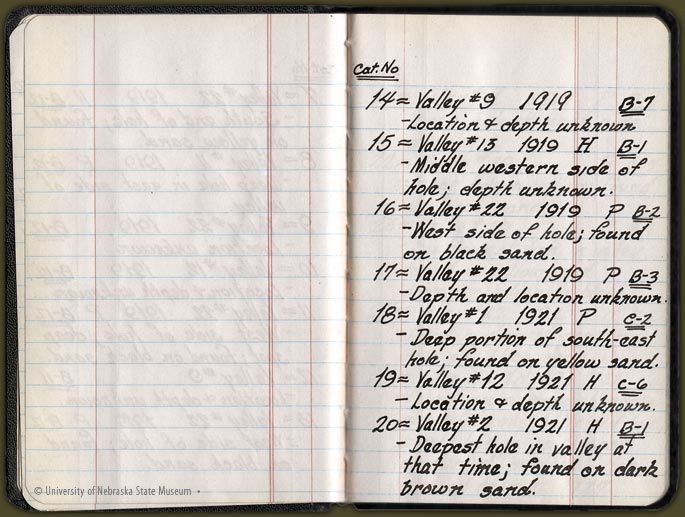 Cat. No
14 = Valley #9 1919 B-7
- Location & depth unknown
15 = Valley #13 1919 H B-1
- Middle western side of
hole; depth unknown.
16 = Valley #22 1919 P B-2
- West side of hole; found
on black sand.
17 = Valley #22 1919 P B-3
- Depth and location unknown.
18 = Valley #1 1921 P C-2
- Deep portion of south-east
hole; found on yellow sand.
19 = Valley #12 1921 H C-6
- Location & depth unknown.
20 = Valley #2 1921 H B-1
- Deepest hole in valley at
that time; found on dark
brown sand.
© University of Nebraska State Museum